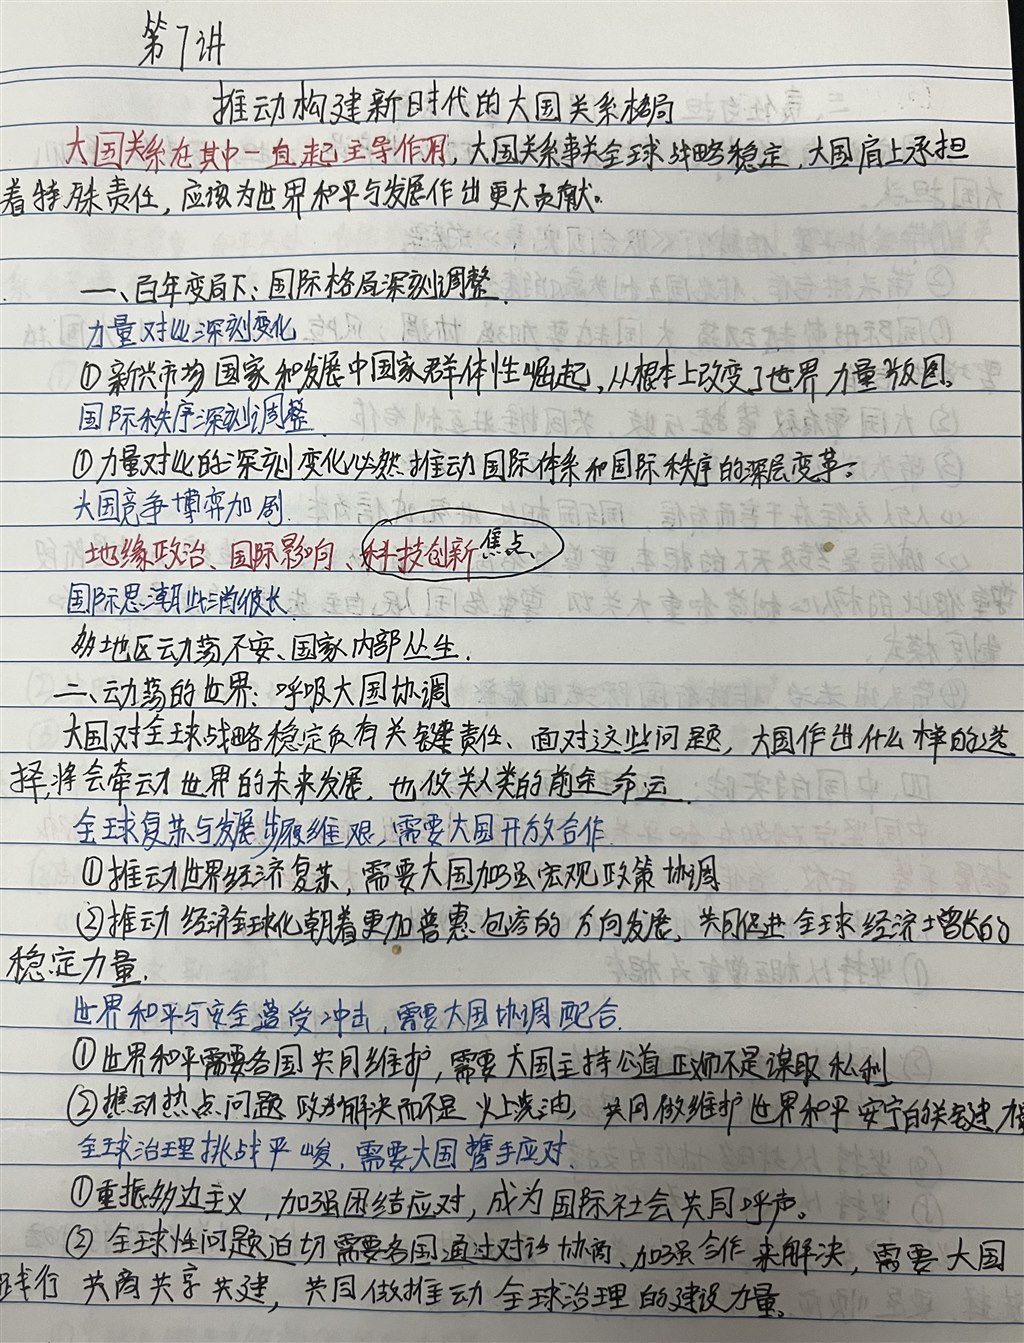 第7讲
推动构建新时代的大国关系格局
大国关系在其中一直起主导作用,大国关系事关全球战略稳定,大国肩上承担
着特殊责任,应该为世界和平与发展作出更大贡献。
一、百年变局下:国际格局深刻调整.
力量对比深刻变化
①新兴市场国家和发展中国家群体性崛起,从根本上改变了世界力量版图。
国际秩序深刻调整.
①力量对比的深刻变化必然推动国际体系和国际秩序的深层变革。
大国竞争博弈加剧.
地缘政治、国际影响、科技创新 焦点
国际思潮此消彼长.
多地区动荡不安、国家内部丛生.
二、动荡的世界:呼吸大国协调
大国对全球战略稳定负有关键责任、面对这些问题,大国作出什么样的选
择,将会牵动世界的未来发展,也攸关人类的前途命运.
全球复苏与发展步履维艰,需要大国开放合作.
①推动世界经济复苏,需要大国加强宏观政策协调
②推动经济全球化朝着更加普惠包容的方向发展,共同促进全球经济增长的
稳定力量.
世界和平与安全遭受冲击,需要大国协调配合.
①世界和平需要各国共同维护,需要大国主持公道正义而不是谋取私利
②推动热点问题政治解决而不是火上浇油,共同做维护世界和平安宁的关键力量
全球治理挑战严峻,需要大国携手应对.
①重振多边主义,加强团结应对,成为国际社会共同呼声。
②全球性问题迫切需要各国通过对话协商、加强合作来解决,需要大国
践行共商共享共建,共同做推动全球治理的建设力量。